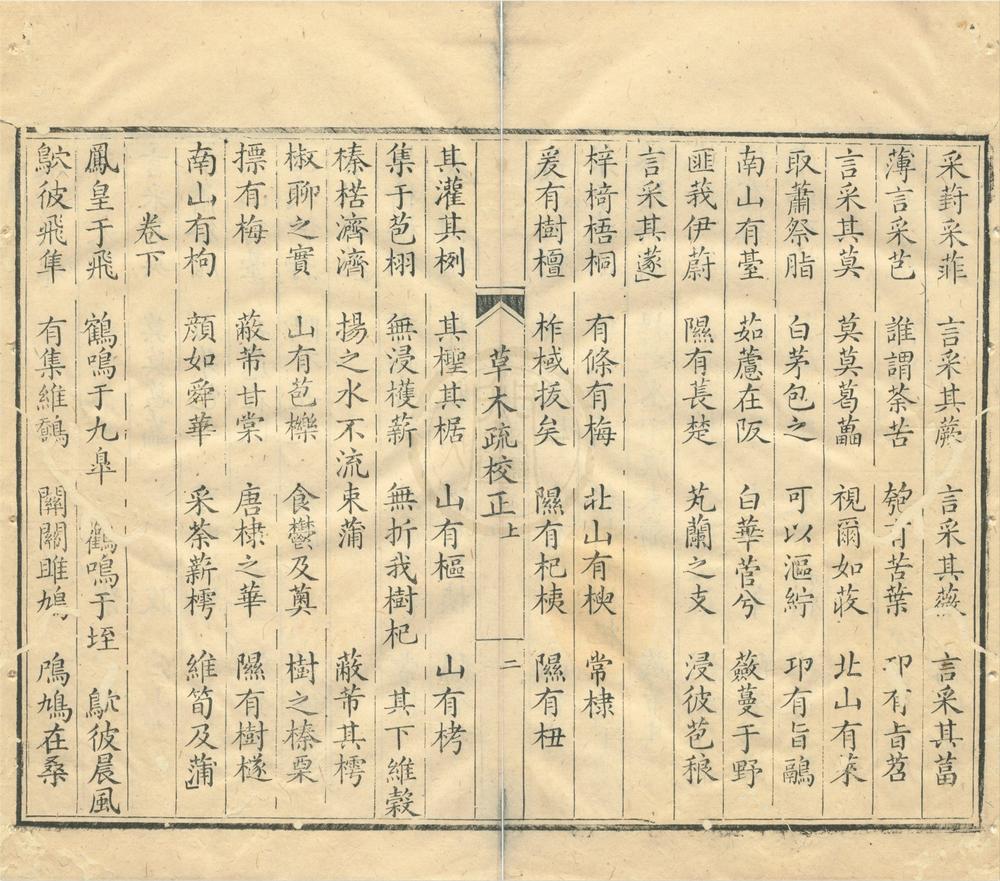 采葑采菲 言采其蕨 言采其薇 言采其葍
薄言采芑 誰謂荼苦 匏有苦葉 邛有旨苕
言采其莫 莫莫葛藟 視爾如荍 北山有萊
取蕭祭脂 白茅包之 可以漚紵 邛有旨鷊
南山有臺 茹藘在阪 白華菅兮 蘞蔓于野
匪莪伊蔚 隰有萇楚 芄蘭之支 浸彼苞稂
言采其蓫」
梓椅梧桐 有條有梅 北山有楰 常棣
爰有樹檀 柞棫拔矣 隰有杞桋 隰有杻
草木疏校正 上 二
其灌其栵 其檉其椐 山有樞 山有栲
集于苞栩 無浸檴薪 無折我樹杞 其下維榖
榛楛濟濟 揚之水不流束蒲 蔽芾其樗
椒聊之實 山有苞櫟 食鬱及薁 樹之榛栗
摽有梅 蔽芾甘棠 唐棣之華 隰有樹檖
南山有枸 顏如舜華 采荼薪樗 維筍及蒲」
卷下
鳳皇于飛 鶴鳴于九皐 鸛鳴于垤 鴥彼晨風
鴥彼飛隼 有集維鷮 關關雎鳩 鳲鳩在桑